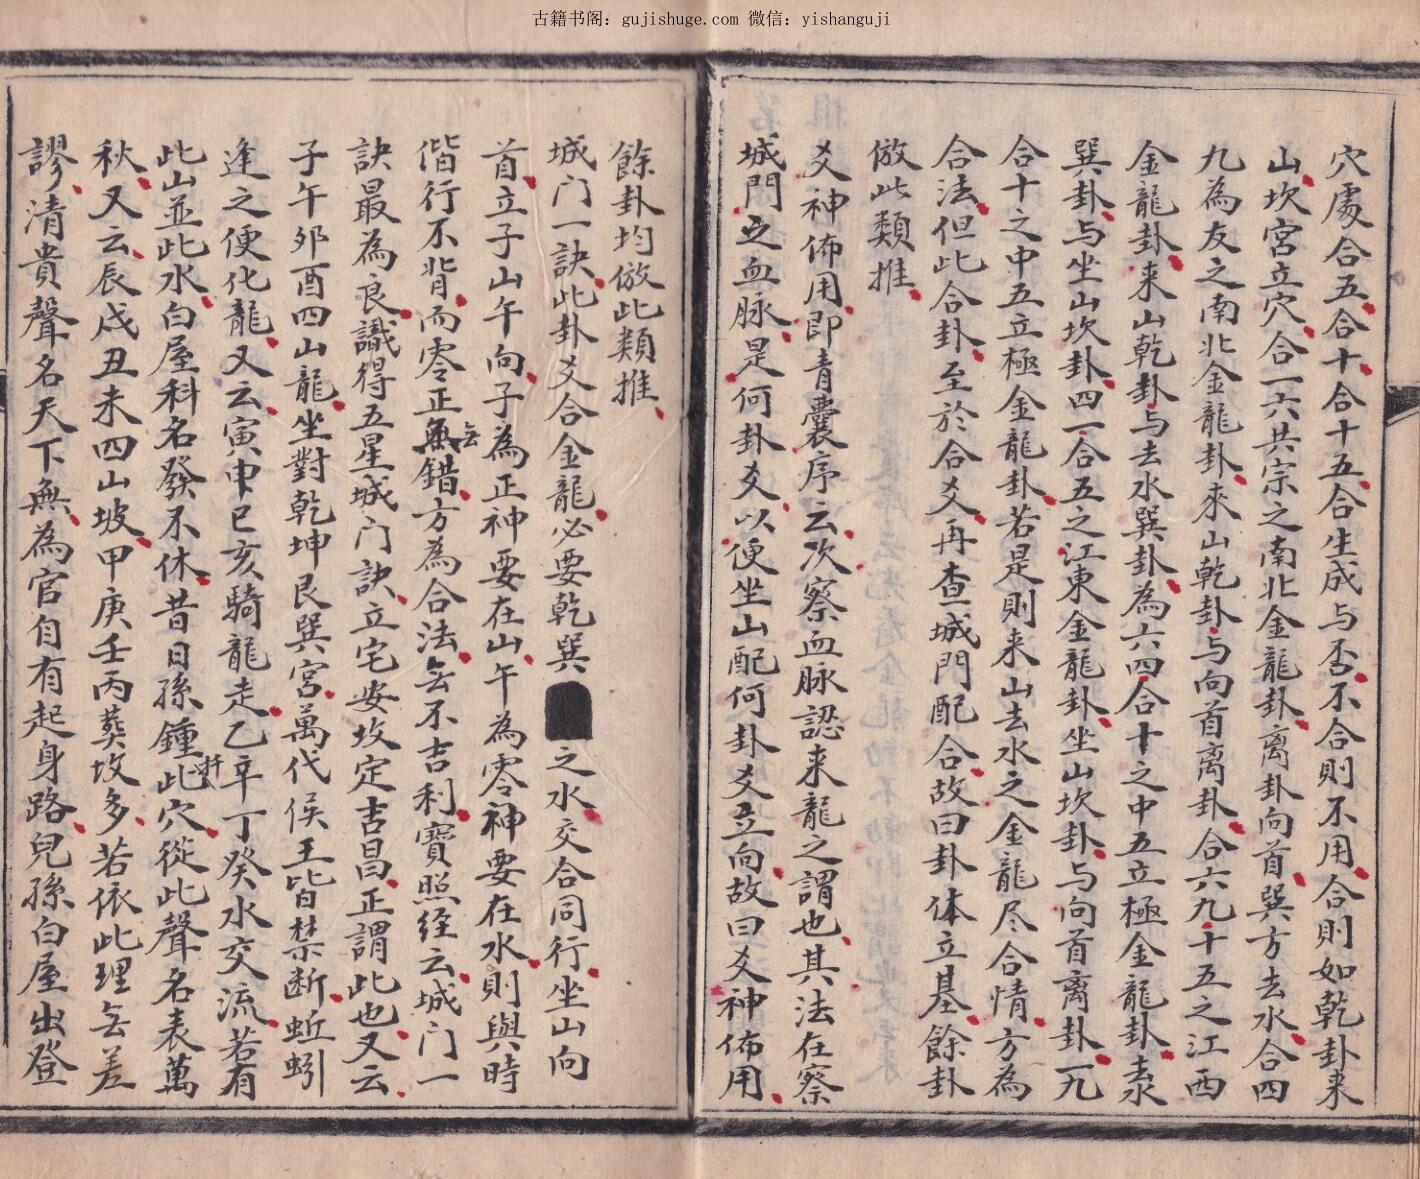 古籍书阁：gujishuge.com 微信：yishanguji
穴處合五、合十、合十五、合生成与否、不合則不用、合則如乾卦来
山、坎宮立穴、合一六共宗之南北金龍卦、离卦向首、巽方去水、合四
九為友之南北金龍卦、來山乾卦、与向首离卦、合六九十五之江西
金龍卦、来山乾卦、与去水巽卦、為六四合十之中五立極金龍卦、去水
巽卦、与坐山坎卦、四一合五之江東金龍卦、坐山坎卦、与向首离卦、一九
合十之中五立極金龍卦、若是則来山去水之金龍尽合情、方為
合法、但此合卦、至於合爻、再查城門配合、故曰卦体立基、餘卦
倣此類推、
爻神佈用、即青囊序云、次察血脉認来龍之謂也、其法在察
城門之血脉、是何卦爻、以便坐山配何卦爻立向、故曰爻神佈用、
餘卦均倣此類推、
城门一訣、此卦爻合金龍、必要乾巽之水交合同行、坐山向
首、立子山午向、子為正神要在山、午為零神要在水、則與時
偕行不背、而零正無錯、方為合法、旡不吉利、寶照經云、城门一
訣最為良、識得五星城门訣、立宅安坟定吉昌、正謂此也、又云、
子午夘酉四山龍、坐對乾坤艮巽宮、萬代侯王皆禁断、蚯蚓
逢之便化龍、又云、寅申巳亥騎龍走、乙辛丁癸水交流、若有
此山並此水、白屋科名發不休、昔日孫鍾扦此穴、從此聲名表萬
秋、又云、辰戌丑未四山坡、甲庚壬丙葬坟多、若依此理旡差
謬、清貴聲名天下無、為官自有起身路、兒孫白屋出登